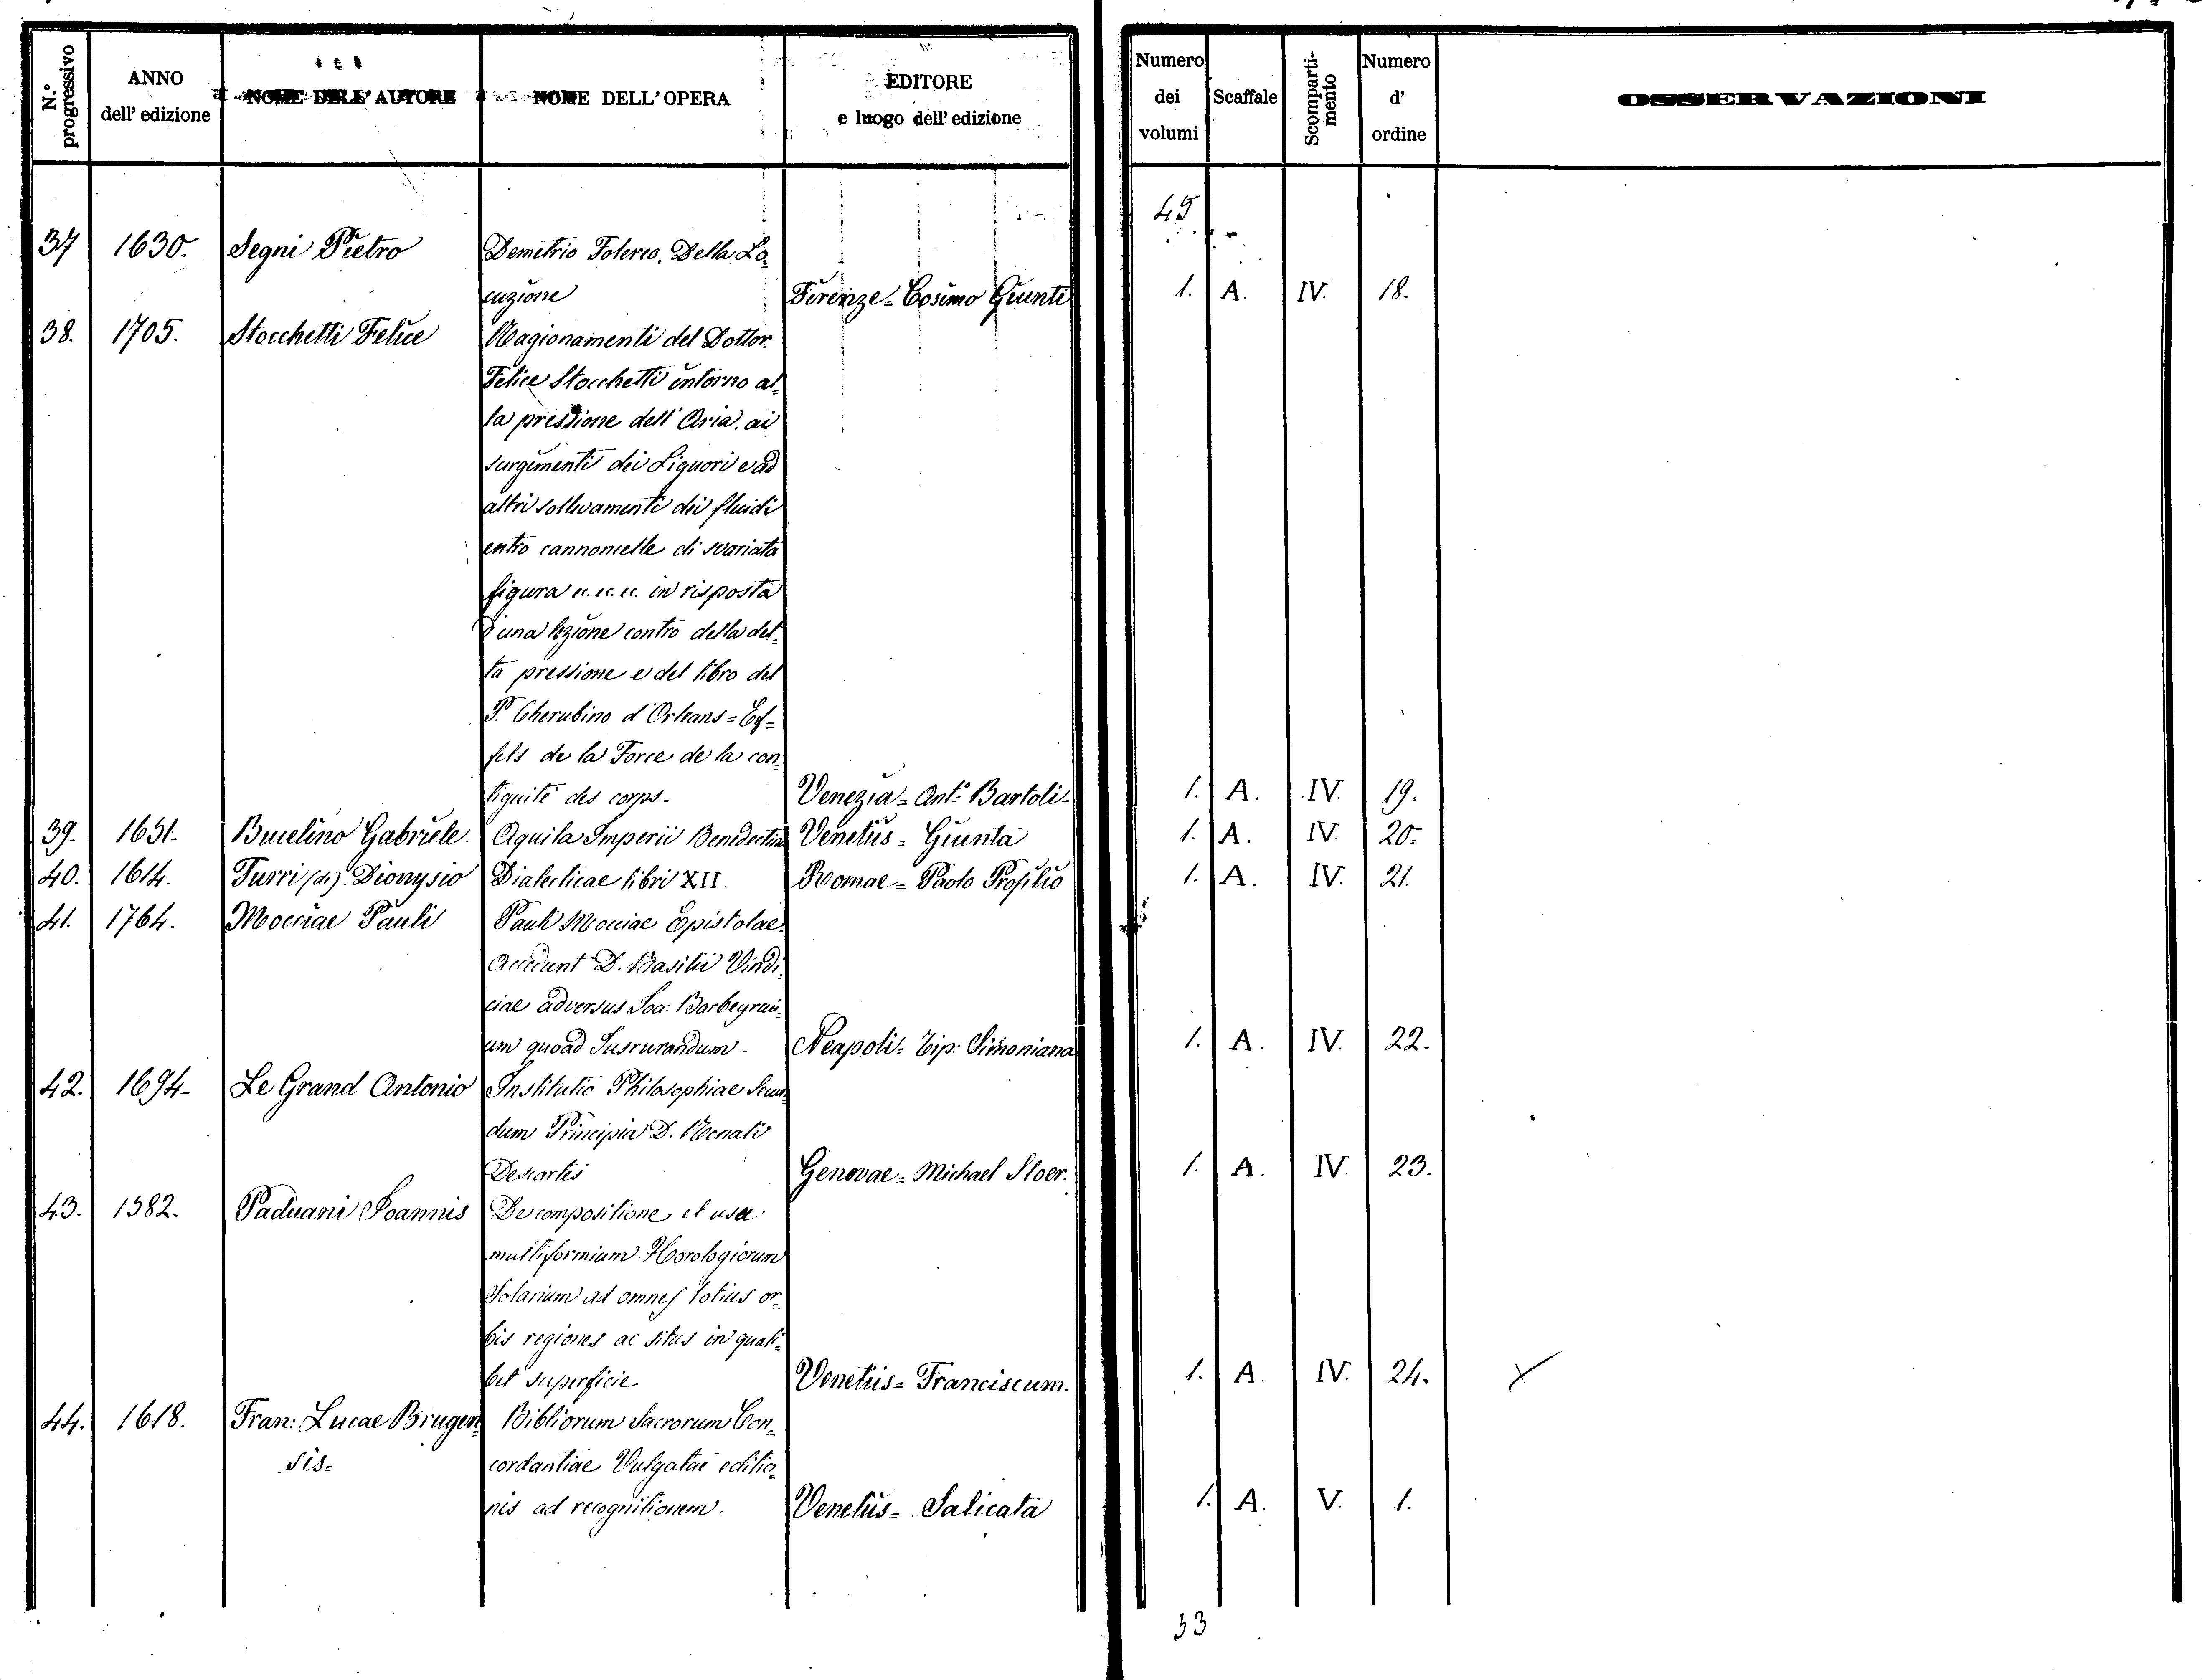 N.° progressivo
ANNO dell' edizione
NOME DELL' AUTORE
NOME DELL' OPERA
EDITORE e luogo dell' edizione
Numero dei volumi
Scaffale
Scomparti-mento
Numero d' ordine
OSSERVAZIONI
45
37 1630. Segni Pietro Demetrio Falereo. Della Lo=
cuzione Firenze = Cosimo Giunti 1. A. IV. 18.
38. 1705. Stocchetti Felice Ragionamenti del Dottor.
Felice Stocchetti intorno al=
la pressione dell' Aria. ai
surgimenti dei Liquori e ad
altri sollevamenti dei fluidi
entro cannoncelle di svariata
figura ec. ec. ec. in risposta
d'una lezione contro della det=
ta pressione e del libro del
P. Cherubino d'Orleans = Ef=
fets de la Force de la con=
tiguitè des corps - Venezia = Ant.° Bartoli - 1. A. IV. 19.
39. 1651- Bucelino Gabriele. Aquila Imperii Benedectina Venetiis = Giunta 1. A. IV. 20.
40. 1614. Turri (de) Dionysio Dialecticae libri XII. Romae = Paolo 1. A. IV. 21.
41. 1764. Mocciae Pauli Pauli Mocciae Epistolae
Accedunt D. Basilii Vindi=
ciae adversus Ioa: Barbeyrac=
um quoad Jusrurandum - Neapoli = Tip: Simoniana 1. A. IV. 22.
42. 1694- Le Grand Antonio Institutio Philosophiae Secun=
dum Principia D. Renati
Descartis Genovae = Michael Stoer. 1. A. IV. 23.
43. 1582. Paduani Joannis De compositione et usu
multiformium Horologiorum
Solarium ad omnes totius or=
bis regiones ac situs in quali=
bet superficie Venetiis = Franciscum. 1. A. IV. 24.
44. 1618. Fran: Lucae Brugen= Bibliorum Sacrorum Con=
sis= cordantiae Vulgatae editio=
nis ad recognitionem. Venetiis = Salicata 1. A. V. 1.
53